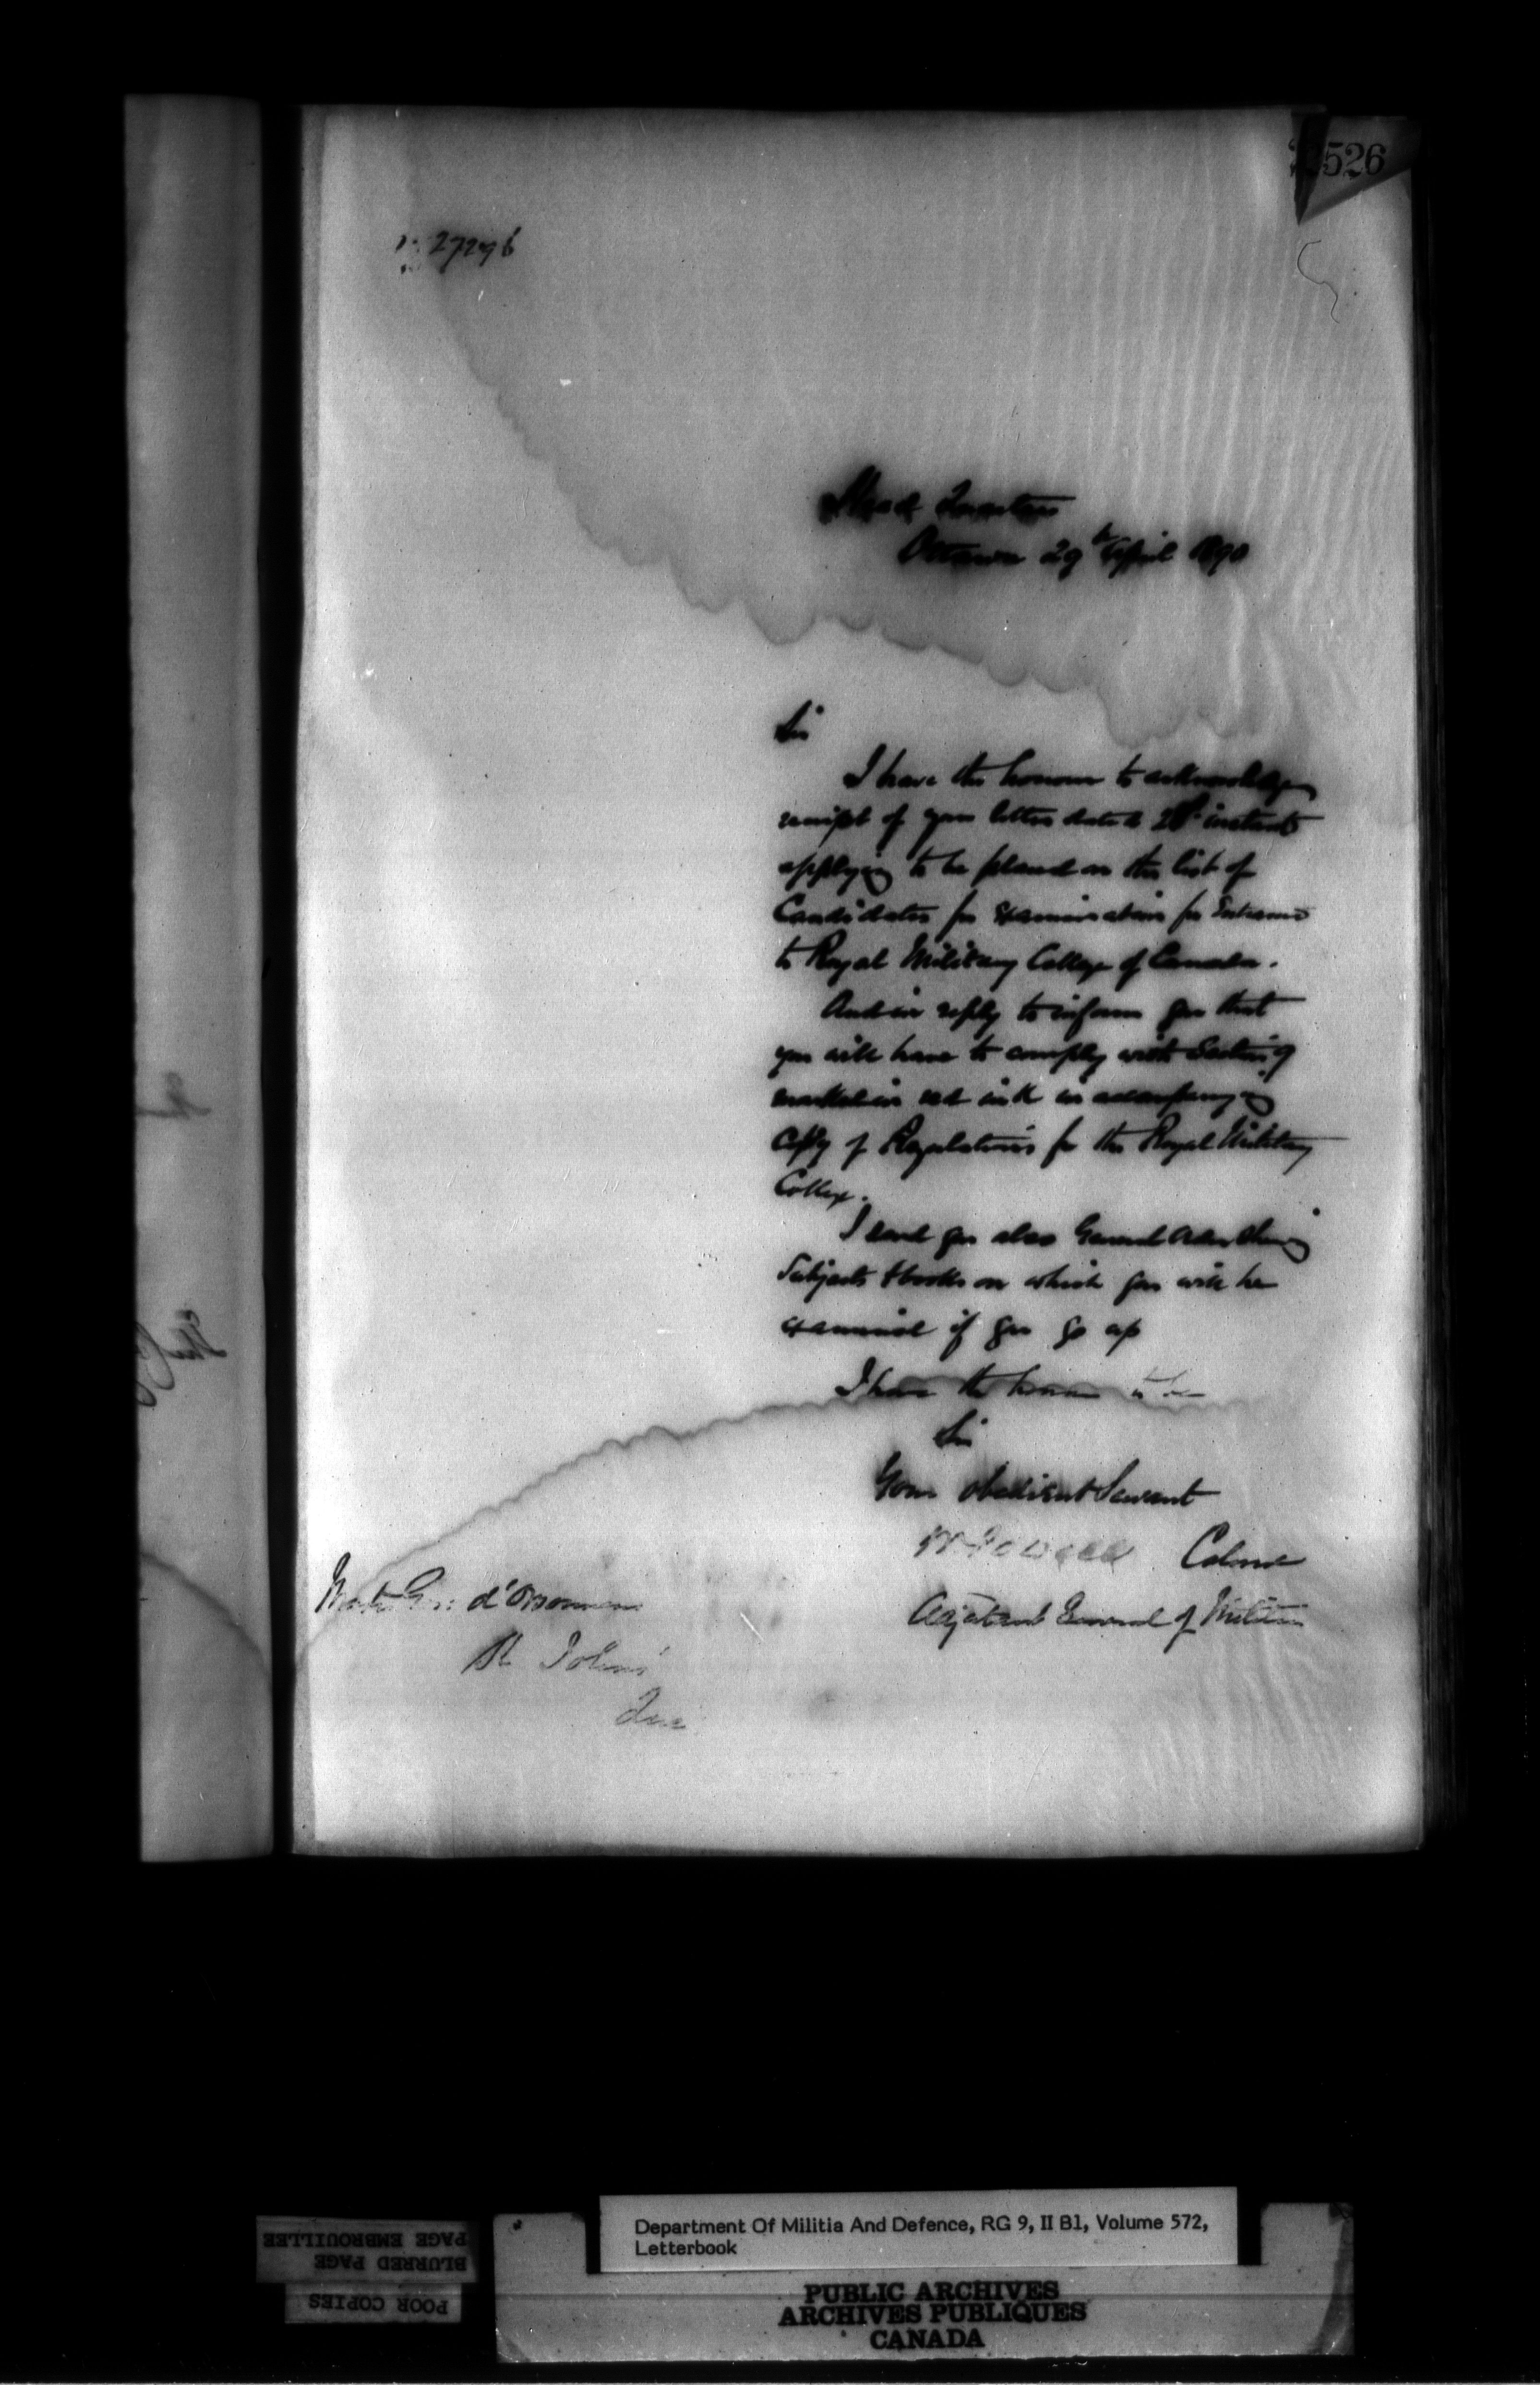 526
27296
Head Quarters
Ottawa 29th April 1890
Sir
I have the honour to acknowledge
receipt of your letter dated 28th instant
applying to be placed on the list of
Candidates for examination for Entrance
to Royal Military College of Canada.
And in reply to inform you that
you will have to comply with Section 9
marked in red ink in accompanying
Copy of Regulations for the Royal Military
College.
I send you also General Order Shewing
Subjects & books on which you will be
examined if you go up
I have the honour to be
Sir
Your obedient Servant
W Powell Colonel
Adjutant General of Militia
d'Orsonnens
St Johns
Que
Department Of Militia And Defence, RG 9, II B1, Volume 572,
Letterbook
PUBLIC ARCHIVES
ARCHIVES PUBLIQUES
CANADA
POOR COPIES
BLURRED PAGE
PAGE EMBROUILLEE